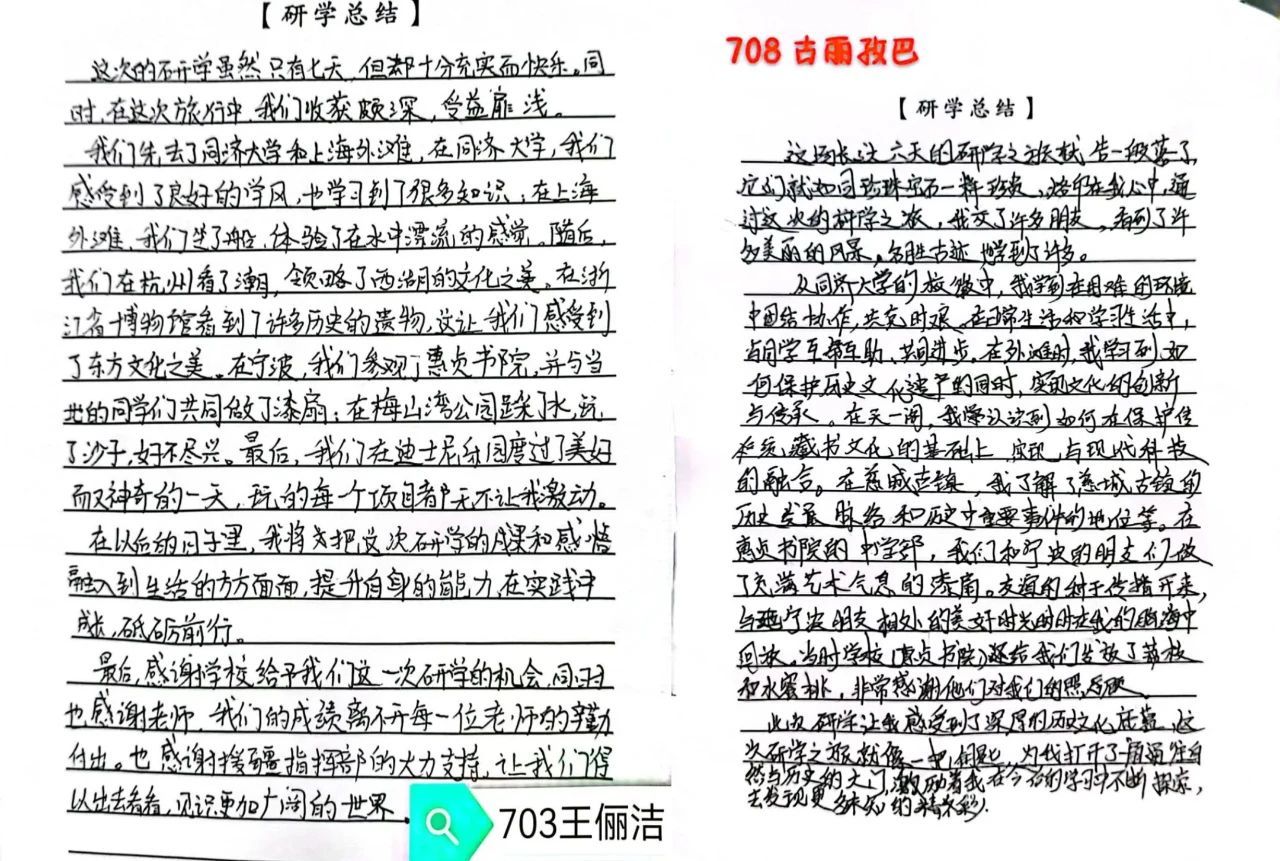 【研学总结】
这次的研学虽然只有七天,但却十分充实而快乐。同
时,在这次旅行中,我们收获颇深,受益匪浅。
我们先去了同济大学和上海外滩,在同济大学,我们
感受到了良好的学风,也学习到了很多知识;在上海
外滩,我们坐了船,体验了在水中漂流的感觉。随后,
我们在杭州看了潮,领略了西湖的文化之美。在浙
江省博物馆看到了许多历史的遗物,这让我们感受到
了东方文化之美。在宁波,我们参观了惠贞书院,并与当
地的同学们共同做了漆扇;在梅山湾公园踩了水,玩
了沙子,好不尽兴。最后,我们在迪士尼乐园度过了美好
而又神奇的一天,玩的每一个项目都无不让我激动。
在以后的日子里,我将会把这次研学的成果和感悟
融入到生活的方方面面,提升自身的能力,在实践中
成长,砥砺前行。
最后,感谢学校给予我们这一次研学的机会,同时
也感谢老师,我们的成绩离不开每一位老师的辛勤
付出。也感谢援疆指挥部的大力支持,让我们得
以出去看看,见识更加广阔的世界。
703王俪洁
708古丽孜巴
【研学总结】
这场长达六天的研学之旅就告一段落了,
它们就如同珍珠宝石一样珍贵,烙印在我心中,通
过这次的研学之旅,我交了许多朋友,看到了许
多美丽的风景,名胜古迹,也学到了许多。
从同济大学的校徽中,我学到在困难的环境
中团结协作,共克时艰。在日常生活和学习生活中,
与同学互帮互助、共同进步。在外滩时,我学习到如
何保护历史文化遗产的同时,实现文化的创新
与传承。在天一阁,我学认识到如何在保护传
承统藏书文化的基础上,实现与现代科技
的融合。在慈城古镇,我了解了慈城古镇的
历史发展脉络和历史中重要事件的地位等。在
惠贞书院的中学部,我们和宁波的朋友们做
了充满艺术气息的漆扇。友谊的种子传播开来,
与宁波朋友相处的美好时光时时在我的脑海中
回放。当时学校(惠贞书院)还给我们发放了荔枝
和水蜜桃,非常感谢他们对我们的照
此次研学让我感受到了深厚的历史文化底蕴,这
次研学之旅就像一把钥匙,为我打开了一扇通往自
然与历史的大门,激励着我在今后的学习中不断探索,
去发现更多未知的精彩。